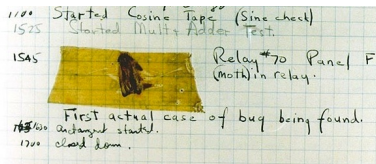 1100 Started Cosine Tape (Sine check)
1525 Started Mult+ Adder Test.
1545 Relay #70 Panel F
(Moth) in relay.
First actual case of bug being found.
1630 antangent started.
1700 closed down.